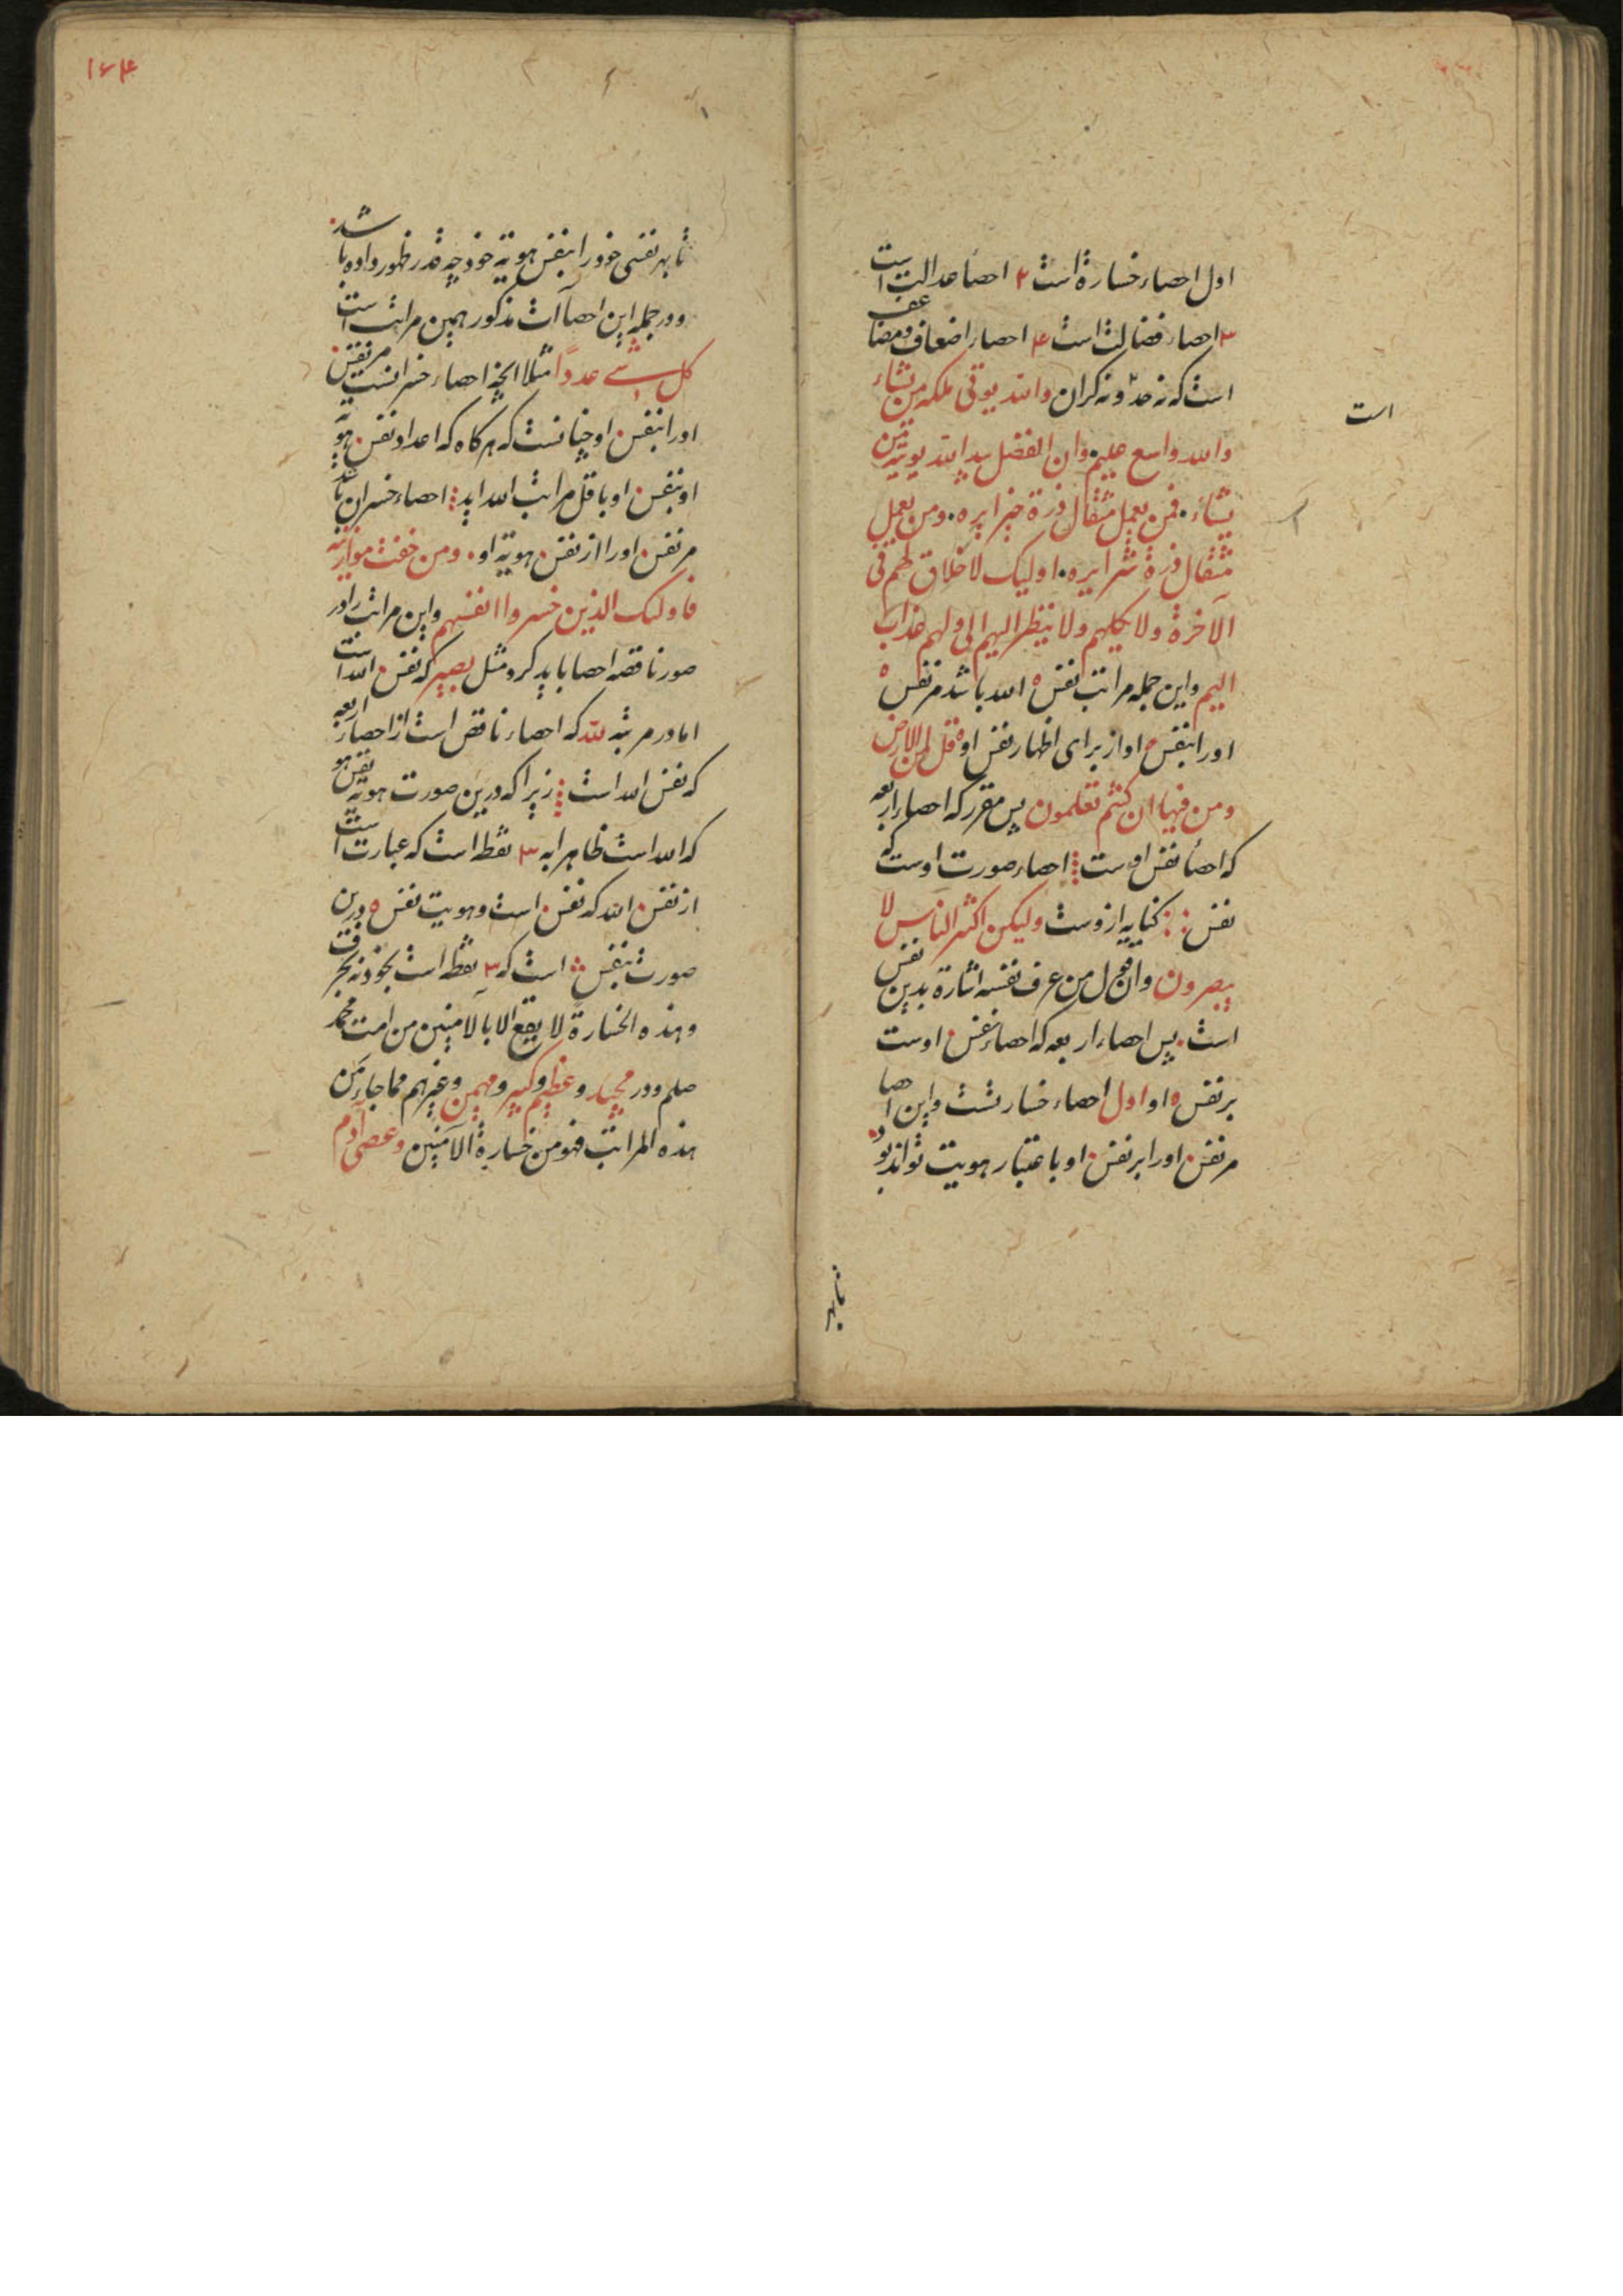 اول احصاء خسارة است ۲ احصأ عدالت است
۳ احصاء فضالت است ۴ احصاء اضعاف ومضاعف
است که نه حد ونه کران والله یوتی ملکه من یشاء
والله واسع علیم. وان الفضل بید الله یوتیه من
یشاء. فمن یعمل مثقال ذرة خیرا یره. ومن یعمل
مثقال ذرة شرا یره. اولیک لا خلاق لهم فی
الآخرة ولا یکلمهم ولا ینظر الیهم ولهم عذاب
الیم واین جمله مراتب نفس ه الله باشد مر نفس ه
اورا بنفس ه او از برای اظهار نفس او ه قل لمن الارض
ومن فیها ان کنتم تعلمون پس مقرر که احصاء اربعه
که احصأ نفس اوست احصاء صورت اوست که
نفس : : کنایه ازوست ولیکن اکثر الناس لا
یبصرون من عرف نفسه اشارة بدین نفس
است. پس احصاء اربعه که احصاء نفس . اوست
بر نفس ه او اول احصاء خسارتست واین احصا
مر نفس . اورا بر نفس . او باعتبار هویت تواند بود
است
تا بهر
۱۶۴
تا بهر نفسی خود را بنفس هویة خود چه قدر ظهور داده باشد
ودر جمله این احصاآت مذکور همین مراتب است
کل شے عدداً مثلا انچه احصاء خسرانست مر نفس .
اورا بنفس . او چنانست که هرکاه که اعداد نفس . هویة
او بنفس . او باقل مراتب الله اید احصاء خسران باشد
مر نفس . اورا از نفس . هویة او . ومن خفت موازینه
فاولئک الذین خسروا انفسهم واین مراتب را در
صور ناقصه احصا باید کرد مثل بصیر که نفس . الله است
اما در مرتبه لله که احصاء ناقص است از احصاء اربعه
که نفس الله است زیرا که درین صورت هویة نفس هو
که الله است ظاهرا به ۳ نقطه است که عبارت است
از نفس . الله که نفس . است وهویت نفس ه درین
صورت بنفس است که ۳ نقطه است بخود نه بحرف
وهذه الخسارة لا یقع الا بالآمنین من امت محمد
صلم ودر مجید وعظیم وکبیر ومهیمن وغیرهم مما جاء من
هذه المراتب فهو من خسارة الآمنین وعصی آدم